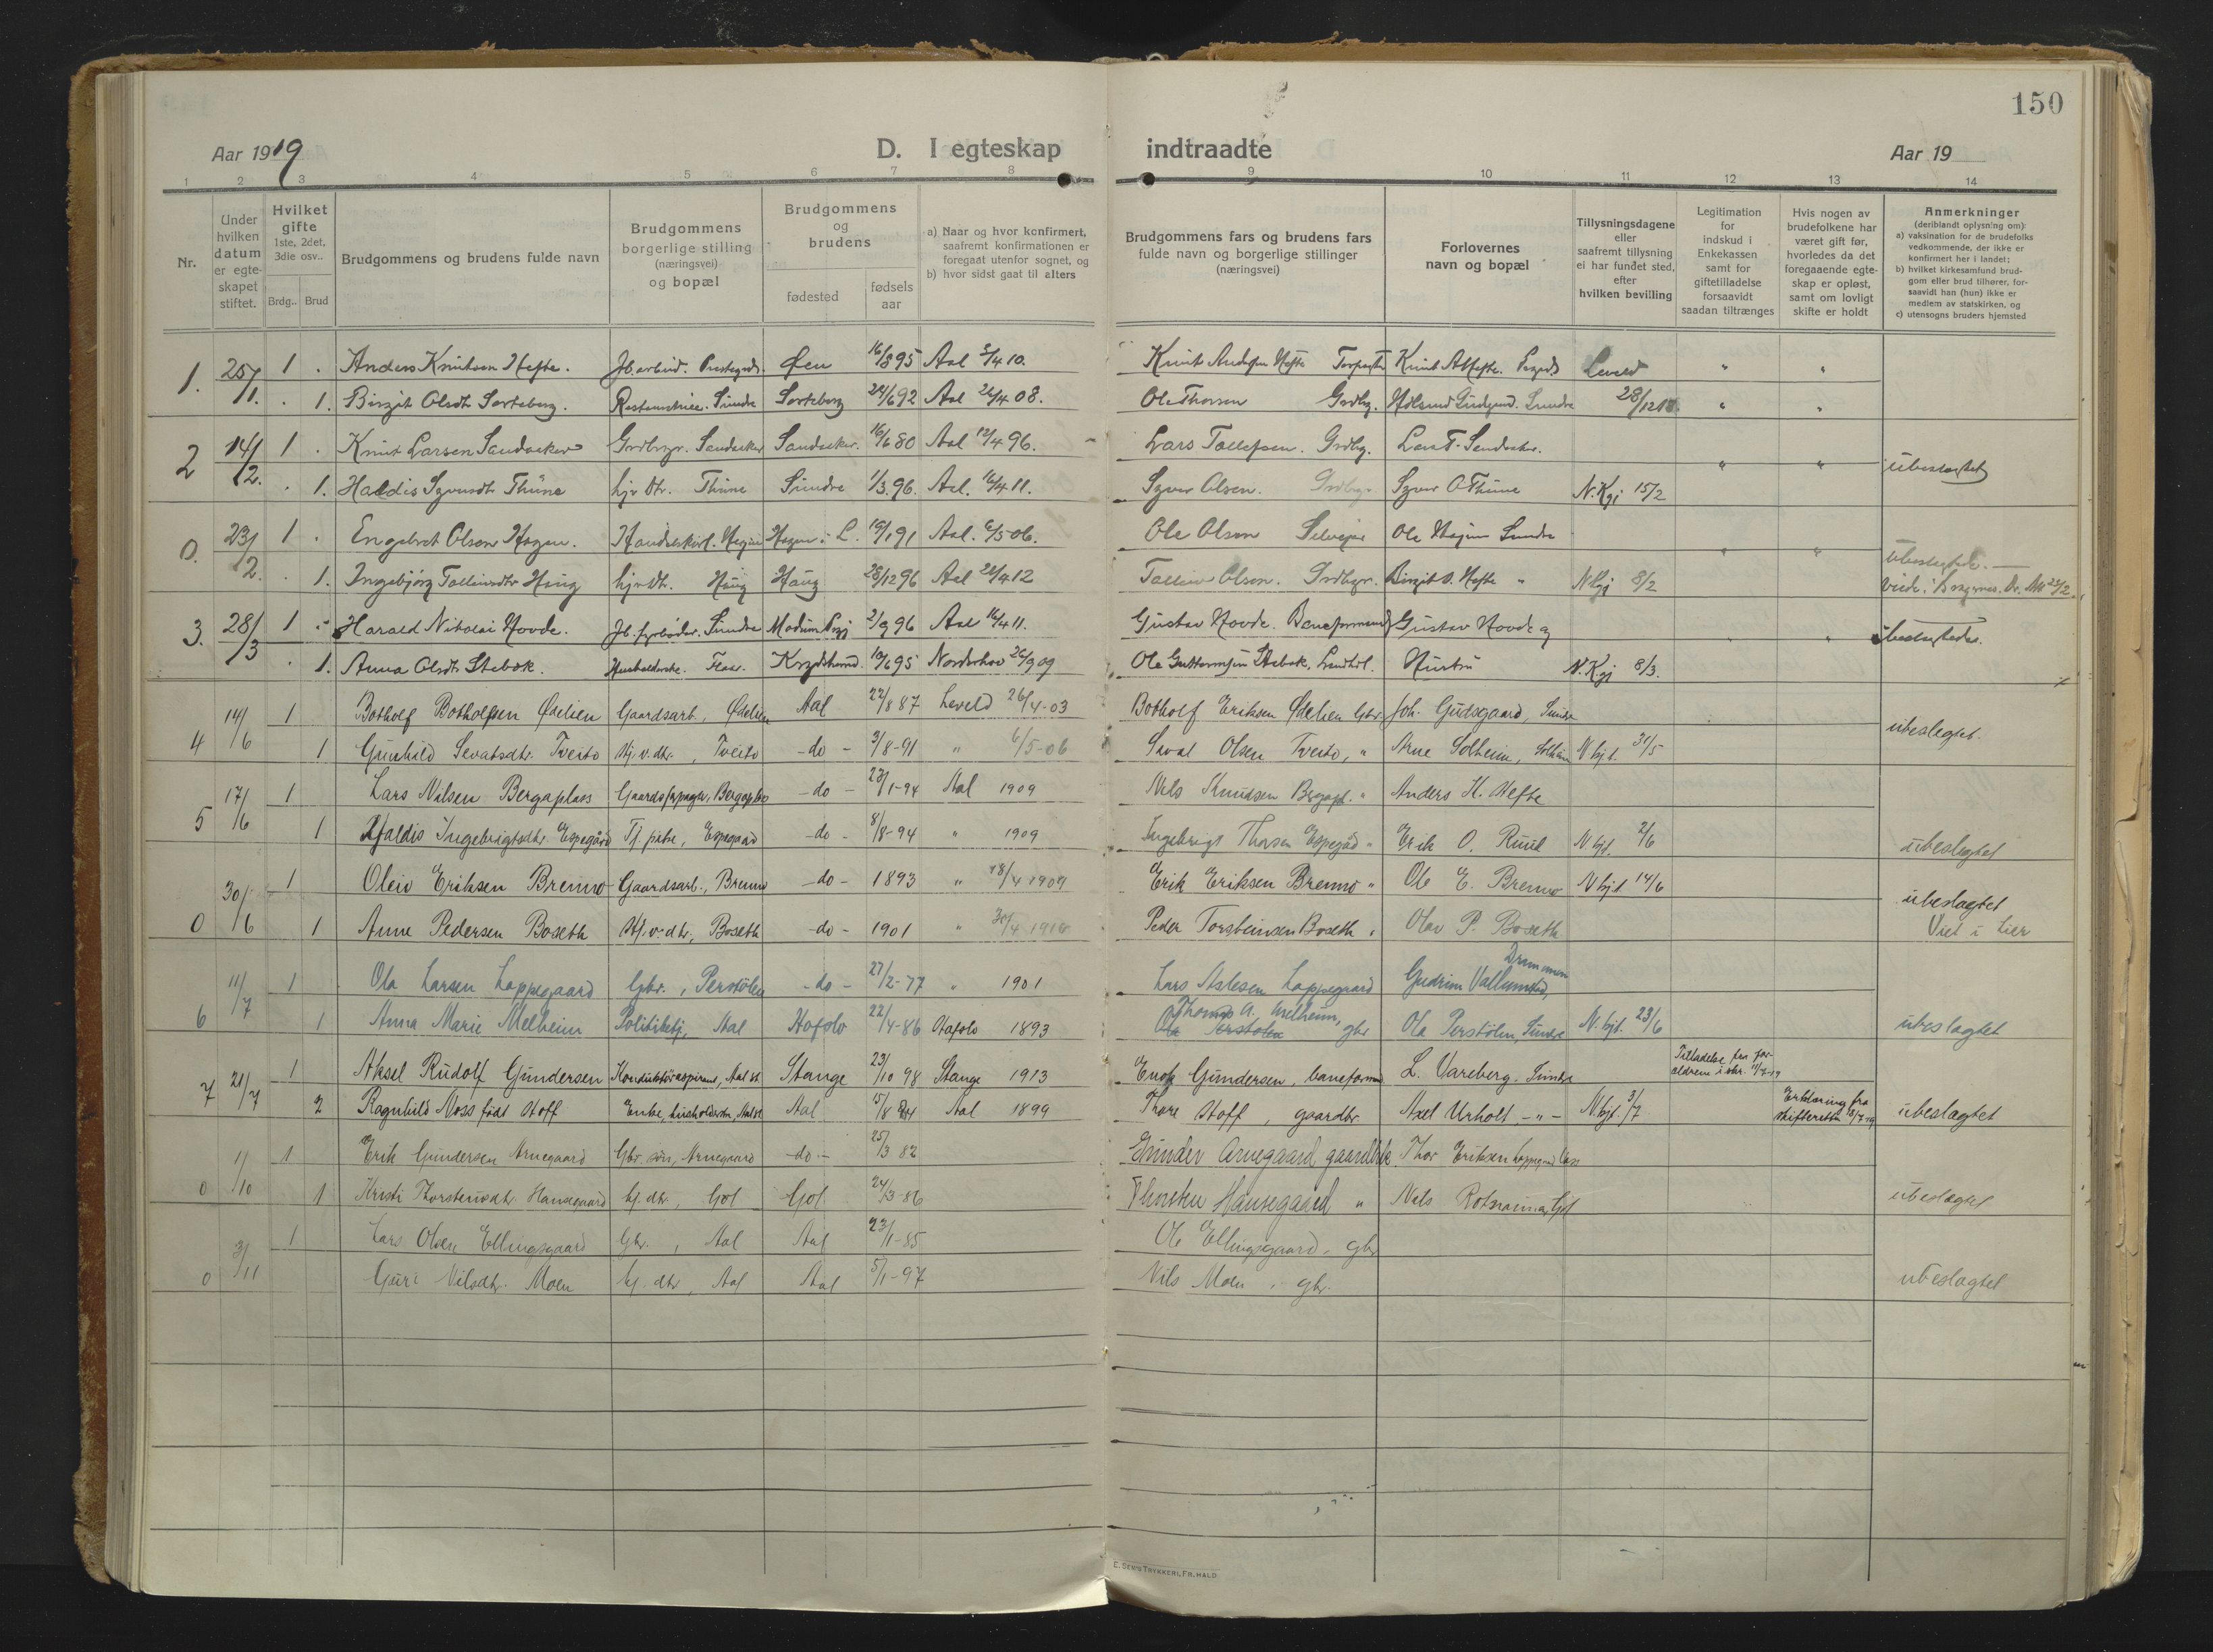 150
Aar 1919 D. I egteskap indtraadte Aar 19
1 2 3 4 5 6 7 8 9 10 11 12 13 14
Nr.
Under hvilken datum er egteskapet stiftet.
Hvilket gifte 1ste, 2det, 3die osv..
Brdg.. Brud
Brudgommens og brudens fulde navn
Brudgommens borgerlige stilling (næringsvei) og bopæl
Brudgommens og brudens
fødested fødsels aar
a) Naar og hvor konfirmert, saafremt konfirmationen er foregaat utenfor sognet, og
b) hvor sidst gaat til alters
Brudgommens fars og brudens fars fulde navn og borgerlige stillinger (næringsvei)
Forlovernes navn og bopæl
Tillysningsdagene eller saafremt tillysning ei har fundet sted, efter hvilken bevilling
Legitimation for indskud i Enkekassen samt for giftetilladelse forsaavidt saadan tiltrænges
Hvis nogen av brudefolkene har været gift før, hvorledes da det foregaaende egteskap er opløst, samt om lovligt skifte er holdt
Anmerkninger (deriblandt oplysning om):
a) vaksination for de brudefolks vedkommende, der ikke er konfirmert her i landet;
b) hvilket kirkesamfund brudgom eller brud tilhører, forsaavidt han (hun) ikke er medlem av statskirken, og
c) utensogns bruders hjemsted
1. 25/1. 1 . Anders Knutson Hefte. Jb.arbeid. Øen 16/8 95 Aal 3/4 10. Knut Andersen Hefte Knut A Hefte. Leveld " "
. 1. Birgit Olsdtr Sorteberg. Sundre Sorteberg 24/6 92 Aal 26/4 08. Ole Thorsen Grdbr. Sundre 28/12 18. " "
2 14/2. 1 . Knut Larsen Sandaker Grdbrgr. Sandaker Sandaker. 16/6 80 Aal 12/4 96. Lars Tollefsen. Grdbr. Lars T. Sandaker. " " ubeslegtet
. 1. Haldis Syversdtr Thune hjv dtr. Thune Sundre 1/3 96. Aal. 16/4 11. Syver Olsen. Grdbr. Syver O Thune N.Kgj 15/2
0. 23/2. 1 . Engebret Olson Hagen. Hagen i L. 19/1 91 Aal. 6/5 06. Ole Olson Selveier Ole Sundre " " ubeslegtede.
. 1. Ingebjørg Tollevsdtr Haug hjv dt. Haug Haug 28/12 96 Aal 21/4 12 Tollev Olsen. Grdbgr. Birgit O. Hefte " N Kgj 8/2
3. 28/3 1 . Harald Nikolai Hovde. Jb. fyrbøder. Sundre Modum 2/9 96 Aal 16/4 11. Gustav Hovde. Baneformand Gustav Hovde og " " ubeslegtede.
. 1. Anna Olsdtr Stabæk. Krødsherad 19/6 95 Norderhov 26/9 09 Ole Guttormsen Stabæk. Hustru N.Kgj 8/3.
4 14/6 1 Botholf Botholfsen Ødelien Gaardsarb., Ødelien Aal 22/8 87 Leveld 26/4-03 Botholf Eriksen Ødelien Gbr. Joh. Gudsgaard, Sundre ubeslegtet.
1 Gunhild Sevatsdtr. Tveito Hj.v.dtr., Tveito -do- 3/8-91 " 6/5-06 Sevat Olsen Tveito, " Arne Solheim, N kjt. 31/5
5 17/6 1 Lars Nilsen Bergaplass Gaardsforpagter, Bergaplass -do- 23/1-94 Aal 1909 Nils Knudsen Bergapl. " Anders K. Hefte
1 Haldis Ingebrigtsdtr. Espegård Tj. pike, Espegaard -do- 8/8-94 " 1909 Ingebrigt Thorsen Espegård " Erik O. Ruud N kjt. 2/6 ubeslegtet
0 30/6 1 Oleiv Eriksen Brenno Gaardsarb., Brenno -do- 1893 " 18/4 1909 Erik Eriksen Brenno " Ole E. Brenno N kjt 14/6 ubeslagtet
1 Anne Pedersen Boseth Hj.v.dtr., Boseth -do- 1901 " 30/4 1916 Peder Torsteinsen Boseth " Olav P. Boseth Viet i Lier
6 11/7 1 Ola Larsen Loppegaard Gbr., Perstølen -do- 27/2-77 " 1901 Lars Aslesen Loppegaard Gudrun Vallumrød, Drammen
1 Anna Marie Melheim Aal Hafslo 22/4-86 Hafslo 1893 Thomas A. Melheim, gbr Ola Perstølen, Sundre N. kjt. 23/6 ubeslagtet
7 21/7 1 Aksel Rudolf Gundersen Konduktøraspirant, Aal st. Stange 23/10 98 Stange 1913 Enok Gundersen, baneformand L. Vareberg. Sundre Tilladelse fra forældrene
2 Ragnhild Noss født Hoff Enke, husholderske, Aal st Aal 15/8 84 Aal 1899 Thore Hoff, gaardbr. Axel Urholt -"- N kjt. 3/7 Erklæring fra skifteretten ubeslagtet
0 1/10 1 Erik Gundersen Arnegaard Gbr. søn, Arnegaard -do- 25/3 82 Gunder Arnegaard gaardbrk. Thor Eriksen Loppegaard
1 Kristi Thorsteinsdtr. Hansegaard Gj. dtr., Gol Gol 24/3-86 Thorsten Hansegaard " Nils Gol ubeslagtet
0 3/11 1 Lars Olsen Ellingsgaard Gbr., Aal Aal 23/1-85 Ole Ellingsgaard, gbr
Guri Nilsdtr. Moen Gj. dtr, Aal Aal 5/1-97 Nils Moen, gbr. ubeslagtet